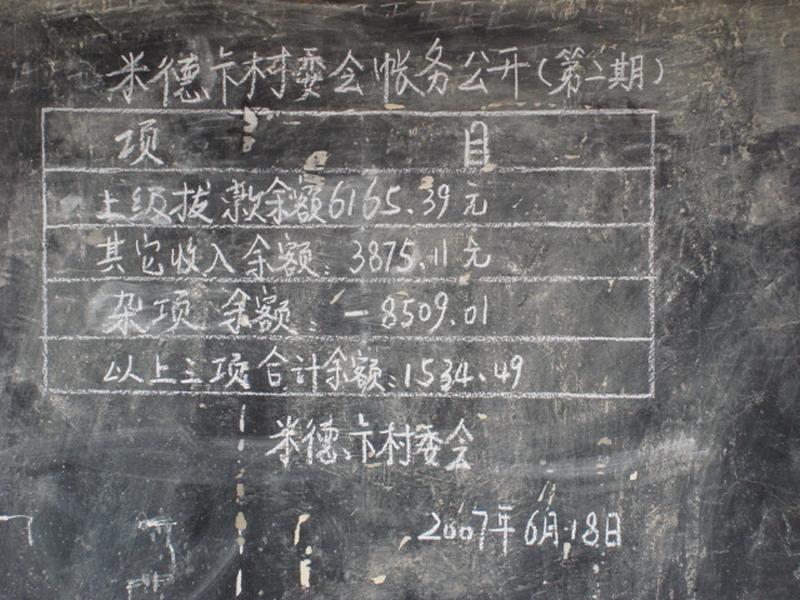 米德卡村委会帐务公开(第二期)
项 目
上级拨款余额6165.39元
其它收入余额:3875.11元
杂项余额:-8509.01
以上三项合计余额:1534.49
米德卡村委会
2007年6月18日